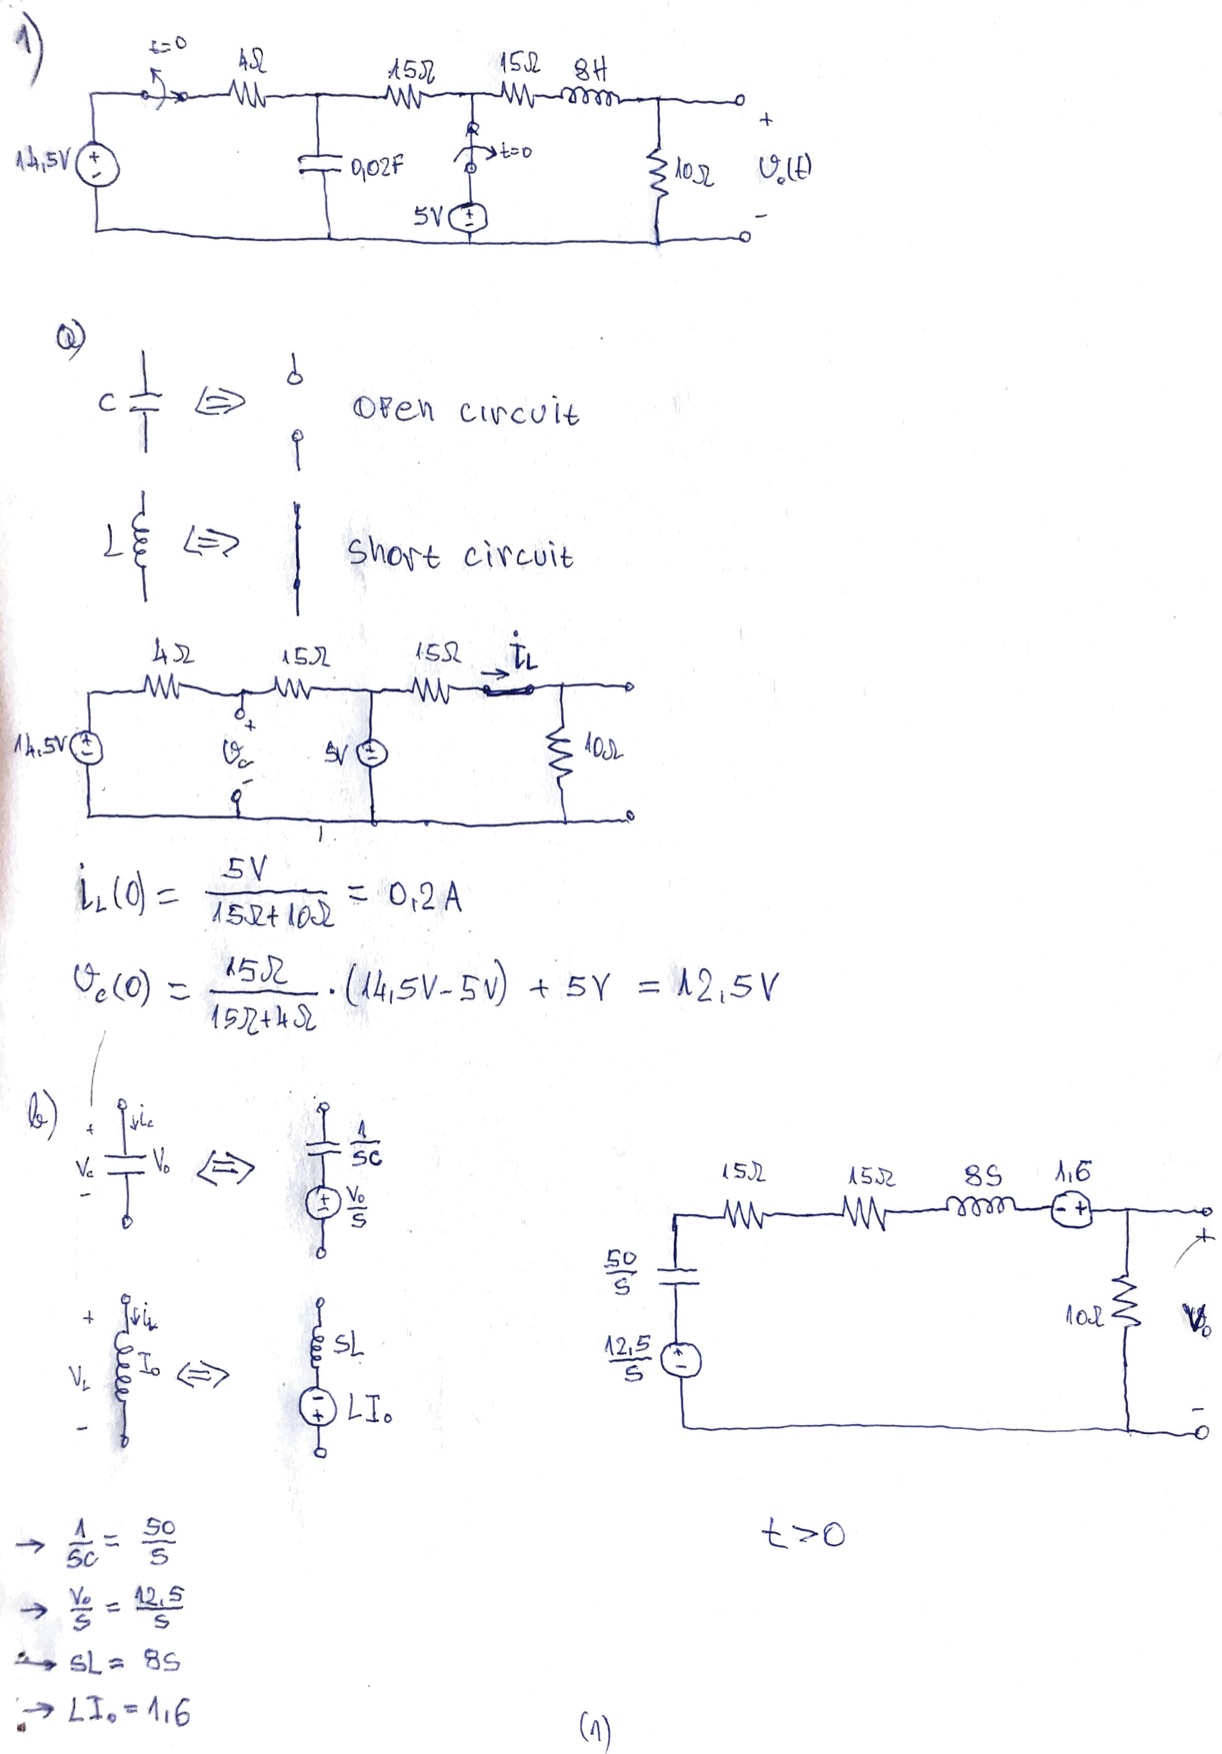 1)
t=0
4Ω
15Ω
15Ω
8H
14,5V
+
-
0,02F
t=0
5V
+
-
10Ω
+
v₀(t)
-
a)
C ⇔ open circuit
L ⇔ short circuit
4Ω
15Ω
15Ω
i_L
14,5V
+
-
+
v_c
-
5V
+
-
10Ω
i_L(0) = 5V / (15Ω+10Ω) = 0,2A
v_c(0) = 15Ω / (15Ω+4Ω) · (14,5V-5V) + 5V = 12,5V
b)
+
V_c
-
i_c
V₀
⇔
1/SC
+
-
V₀/S
+
V_L
-
i_L
I₀
⇔
SL
-
+
LI₀
15Ω
15Ω
8S
1,6
- +
50/S
12,5/S
+
-
10Ω
+
V₀
-
t>0
→ 1/SC = 50/S
→ V₀/S = 12,5/S
→ SL = 8S
→ LI₀ = 1,6
(1)